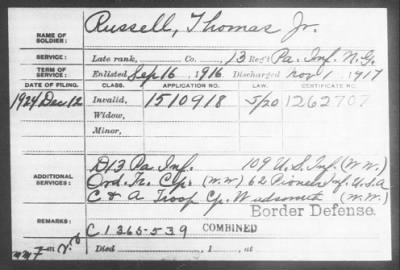 NAME OF SOLDIER: Russell, Thomas Jr.
SERVICE: Late rank, Co. , 13 Reg't Pa. Inf. N.G.
TERM OF SERVICE: Enlisted Sep 16 1916 Discharged Nov 1, 1917
DATE OF FILING. CLASS. APPLICATION NO. LAW. CERTIFICATE NO.
1924 Dec 12 Invalid, 1510918 1262707
Widow,
Minor,
ADDITIONAL SERVICES: D 13 Pa. Inf. 109 U.S. Inf. (W.W.)
Ord. Tr. Cp. (W.W.) 62 Pioneer Inf. U.S.A
C & A Troop Cp. Wadsworth (W.W.)
Border Defense.
REMARKS: C 1365-539 COMBINED
Died , 1 , at